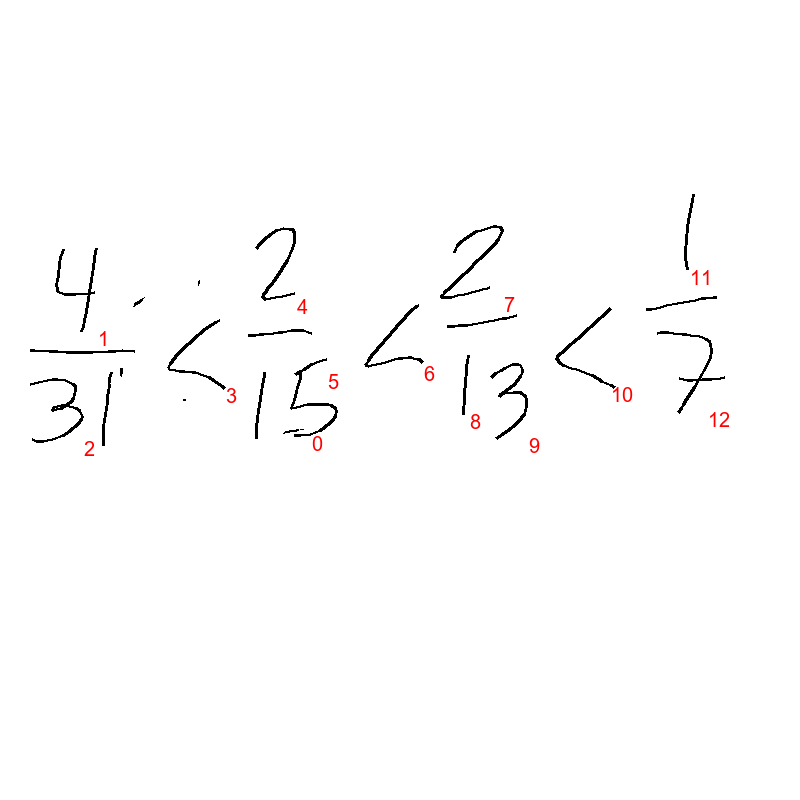 4/31 < 2/15 < 2/13 < 1/7
1 2 3 4 5 0 6 7 8 9 10 11 12